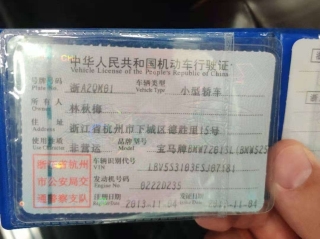 中华人民共和国机动车行驶证
Vehicle License of the People's Republic of China
号牌号码 浙A2QK81 车辆类型 小型轿车
Plate No. Vehicle Type
所有人 林秋梅
Owner
住址 浙江省杭州市下城区德胜里15号
使用性质 非营运 品牌型号 宝马牌
浙江省杭州
市公安局交
通警察支队
车辆识别代号
VIN
发动机号码 02220235
注册日期 2013-11-04 2013-11-04